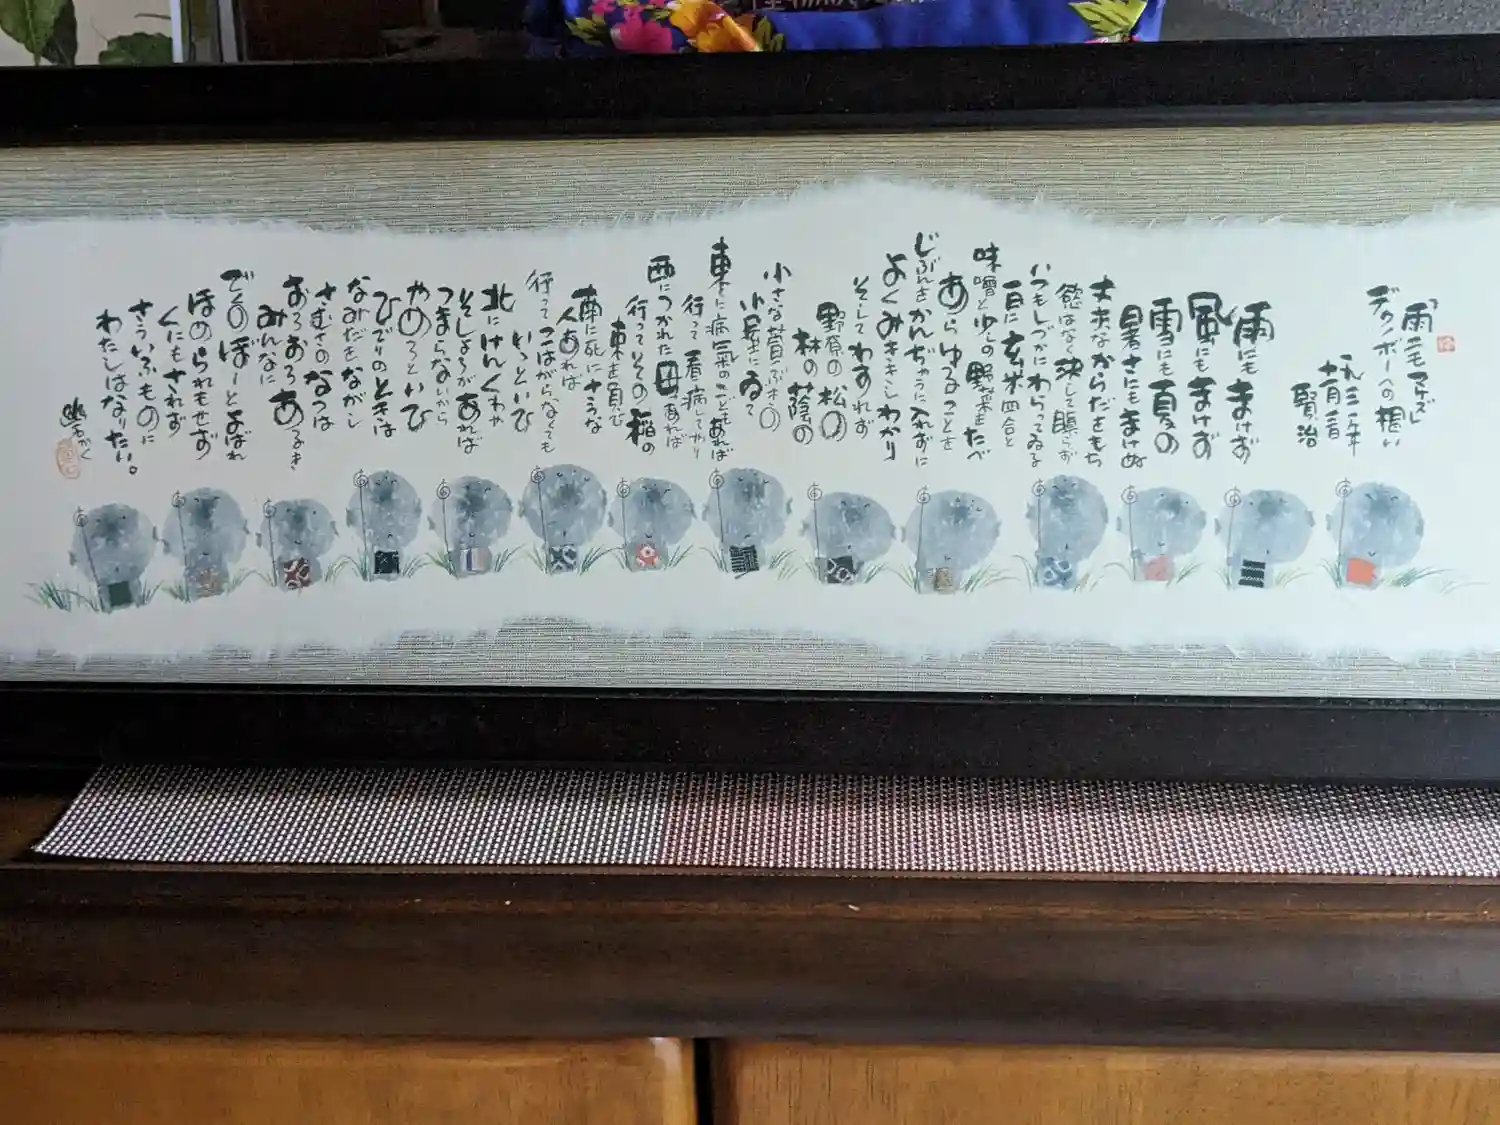 「雨ニモマケズ」
デクノボーへの想い
一九三一年
十一月三日
賢治
雨にもまけず
風にもまけず
雪にも夏の
暑さにもまけぬ
丈夫なからだをもち
慾はなく決して瞋らず
いつもしづかにわらってゐる
一日に玄米四合と
味噌と少しの野菜をたべ
あらゆることを
じぶんをかんぢゃうに入れずに
よくみききしわかり
そしてわすれず
野原の松の
林の蔭の
小さな萱ぶきの
小屋にゐて
東に病氣のこどもあれば
行って看病してやり
西につかれた母あれば
行ってその稲の
束を負ひ
南に死にさうな
人あれば
行ってこはがらなくても
いゝといひ
北にけんくわや
そしょうがあれば
つまらないから
やめろといひ
ひでりのときは
なみだをながし
さむさのなつは
おろおろあるき
みんなに
でくのぼーとよばれ
ほめられもせず
くにもされず
さういふものに
わたしはなりたい。